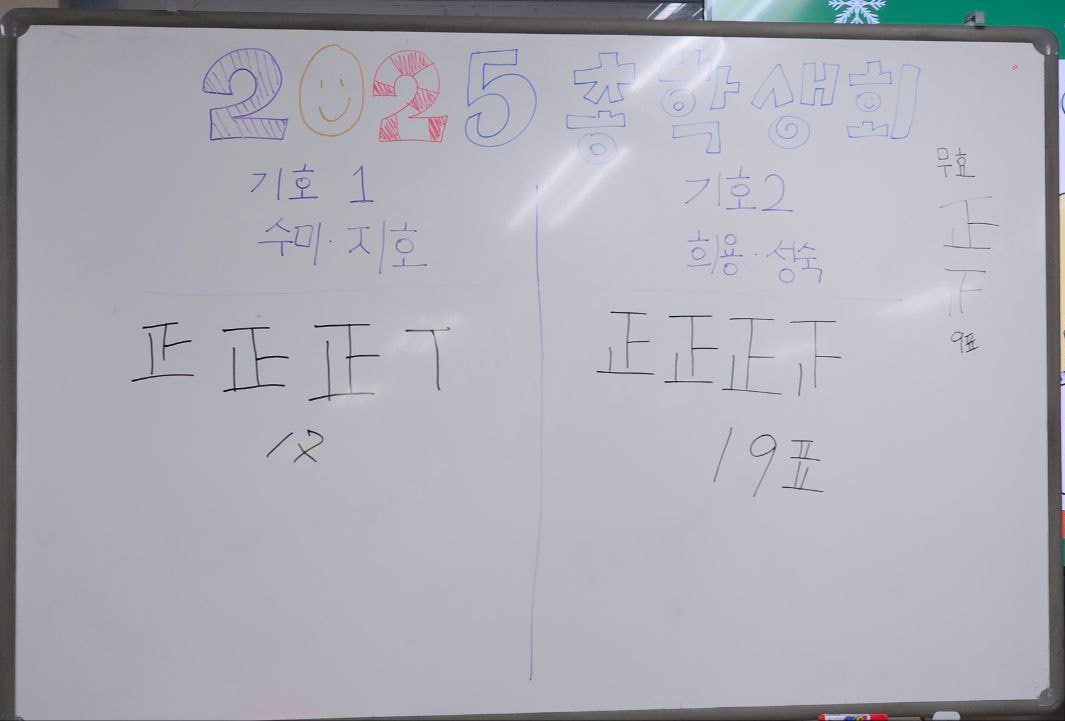 2025 총학생회
기호 1
수미·지호
正 正 正 丅
기호2
희용·성숙
正 正 正 𠄟
19표
무효
正
𠄟
9표